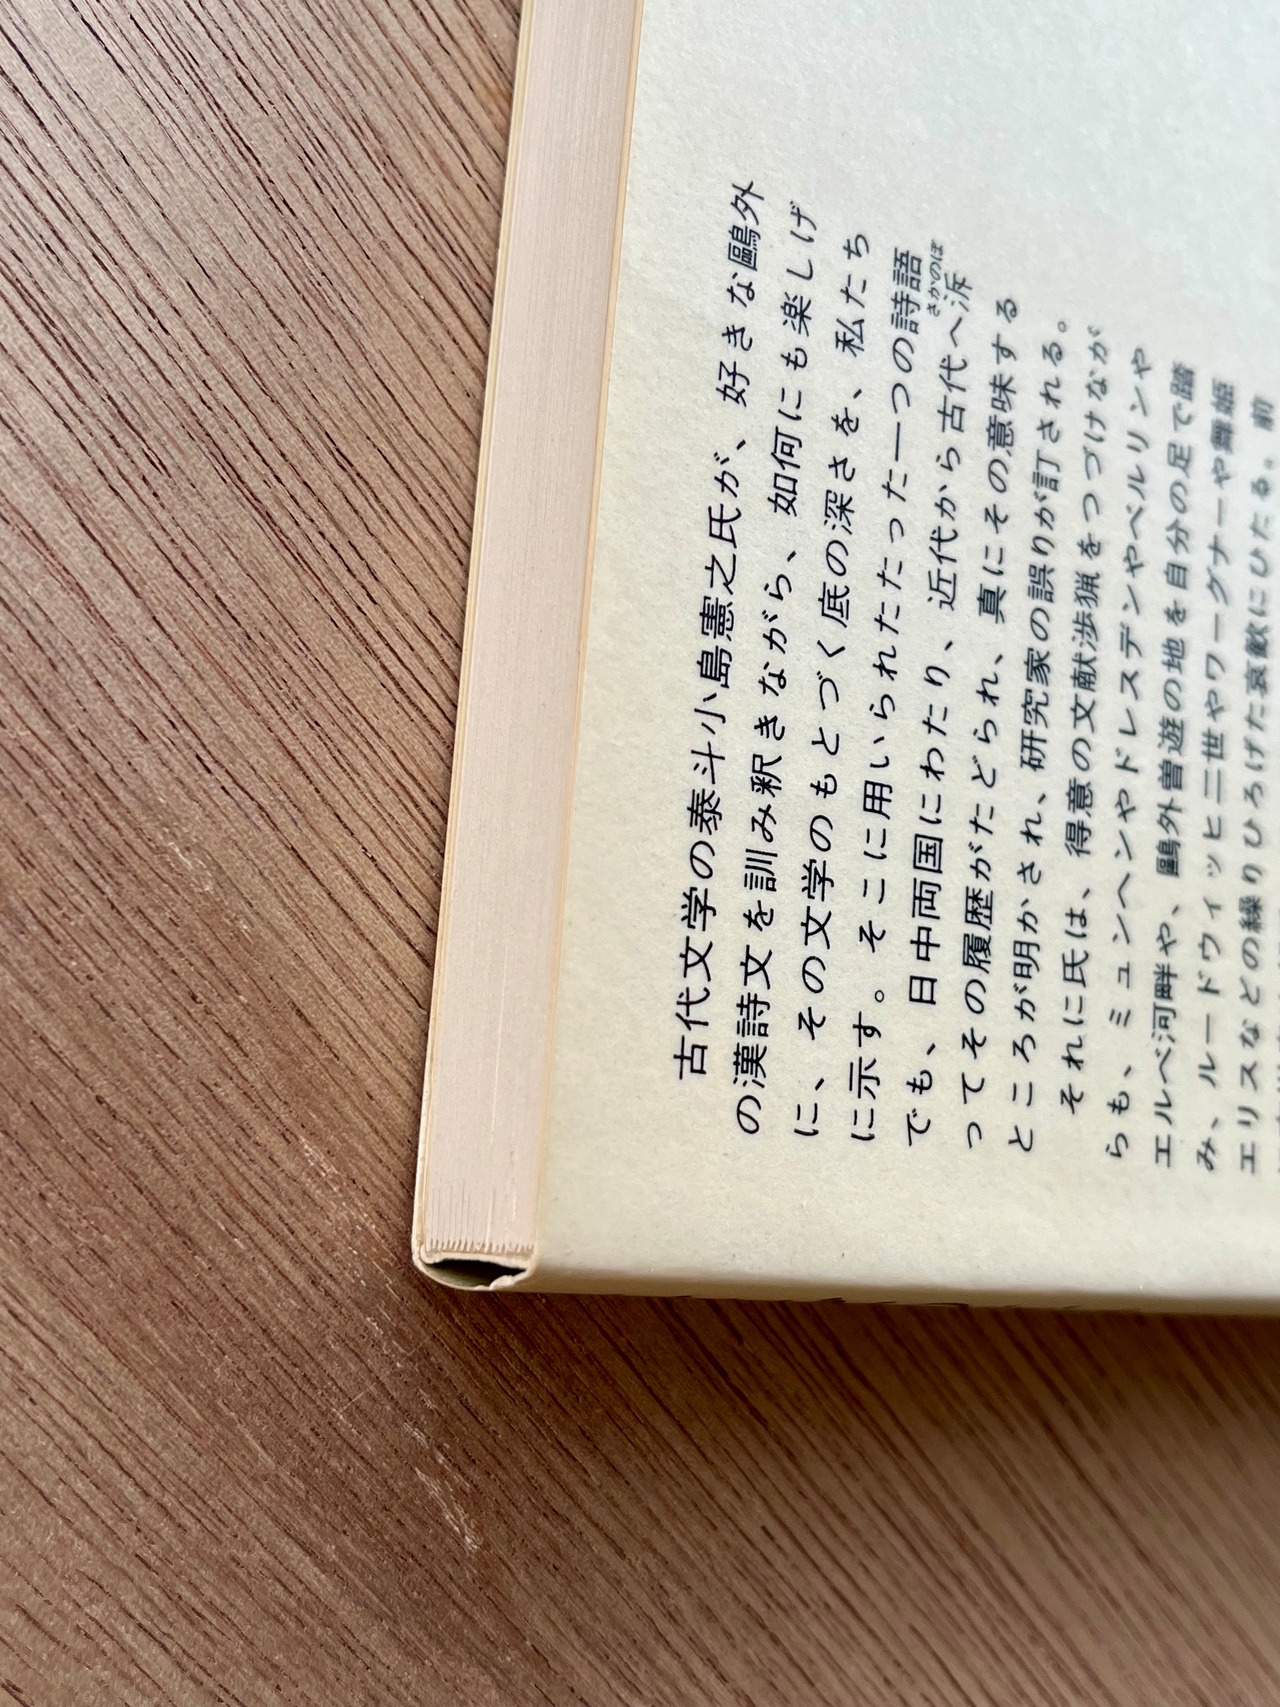 古代文学の泰斗小島憲之氏が、好きな鷗外
の漢詩文を訓み釈きながら、如何にも楽しげ
に、その文学のもとづく底の深さを、私たち
に示す。そこに用いられたたった一つの詩語
でも、日中両国にわたり、近代から古代へ泝さかのぼ
ってその履歴がたどられ、真にその意味する
ところが明かされ、研究家の誤りが訂される。
それに氏は、得意の文献渉猟をつづけなが
らも、ミュンヘンやドレスデンやベルリンや
エルベ河畔や、鷗外曽遊の地を自分の足で踏
み、ルードウィッヒ二世やワーグナーや舞姫
エリスなどの繰りひろげた哀歓にひたる。前